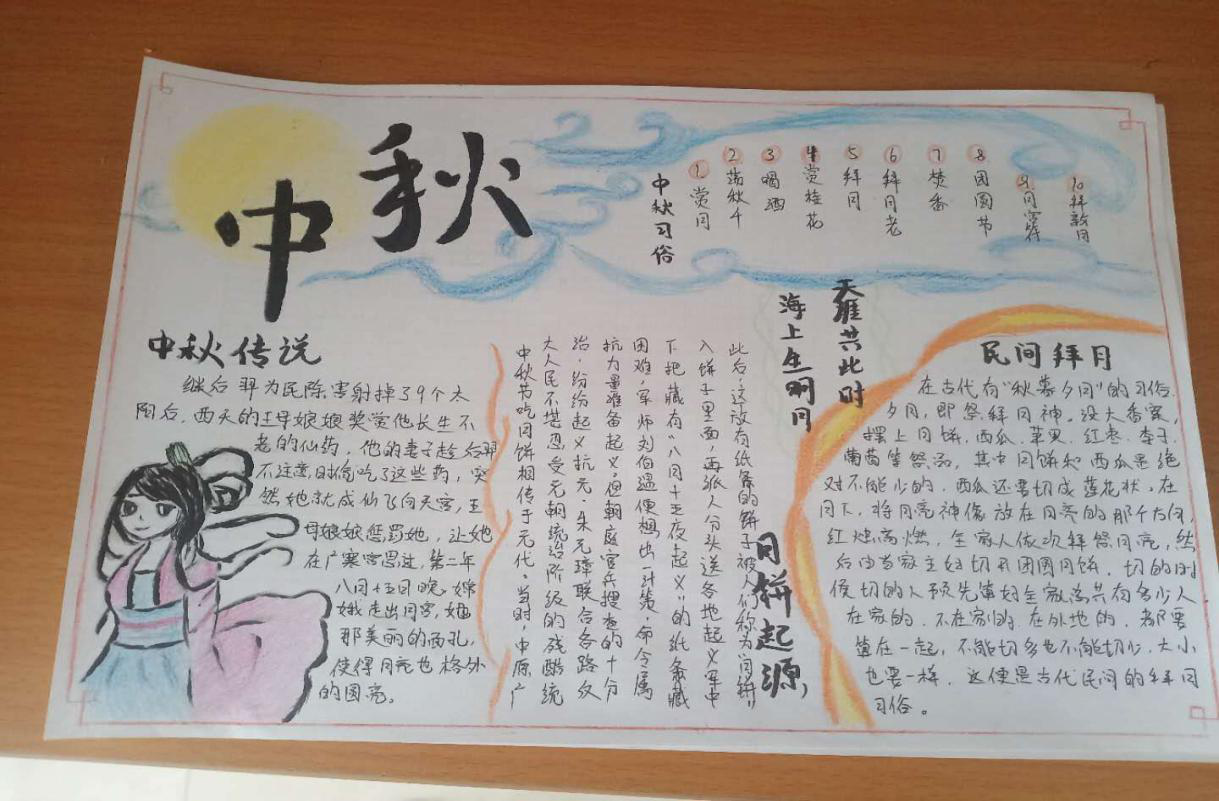 中秋
中秋习俗
①赏月
②荡秋千
③喝酒
4赏桂花
⑤拜月
⑥拜月老
⑦焚香
⑧团圆节
9.月宫符
10拜新月
天雅共此时
海上生明月
中秋传说
继后羿为民除害射掉了9个太
阳后,西天的王母娘娘奖赏他长生不
老的仙药,他的妻子趁后羿
不注意时偷吃了这些药,突
然她就成仙飞向天宫,王
母娘娘惩罚她,让她
在广寒宫思过,第二年
八月十五日晚,嫦
娥走出月宫,她
那美丽的面孔,
使得月亮也格外
的圆亮。
月饼起源,
中秋节吃月饼相传于元代。当时,中原广
大人民不堪忍受元朝统治阶级的残酷统
治,纷纷起义抗元,朱元璋联合各路反
抗力量准备起义,但朝庭官兵搜查的十分
困难,军师刘伯温便想出一计策,命令属
下把藏有"八月十五夜起义"的纸条藏
入饼子里面,再派人分头送各地起义军中
此后,这放有纸条的饼子被人们称为"月饼"
民间拜月
在古代有"秋暮夕月"的习俗.
夕月,即祭拜月神。设大香案,
摆上月饼.西瓜.苹果.红枣.李子.
葡萄等祭品,其中月饼和西瓜是绝
对不能少的.西瓜还要切成莲花状.在
月下,将月亮神像放在月亮的那个方向,
红烛高燃,全家人依次拜祭月亮,然
后由当家主妇切开团圆月饼.切的时
候切的人预先算好全家共有多少人
在家的.不在家的.在外地的.都要
算在一起,不能切多也不能切少.大小
也要一样.这便是古代民间的拜月
习俗。